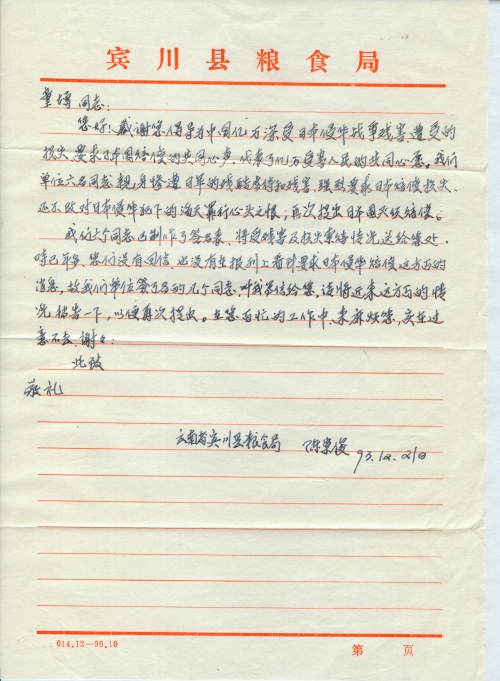 宾川县粮食局
童增同志：
您好！感谢您倡导为中国亿万深受日本侵华战争残害、遭受的
损失要求日本国赔偿的共同心声，代表了亿万受害人民的共同心意。我们
单位六名同志亲身惨遭日军的残酷虐待和残害，强烈要求日本赔偿损失，
对日本侵华犯下的滔天罪行心头之恨，再次提出日本国必须赔偿。
我们六个同志已制作了签名表，将受残害及损失索赔情况送给您处，
时已年多，您们没有回信，也没有在报刊上看到要求日本侵华赔偿这方面的
消息，故我们单位签了名的几个同志，叫我写信给您，请将近来这方面的情
况报告一下，以便再次提出。在您百忙的工作中，来麻烦您，实在过
意不去，谢谢：
此致
敬礼
云南省宾川县粮食局 陈 俊 93.12.21日
014.12—90.10
第 页